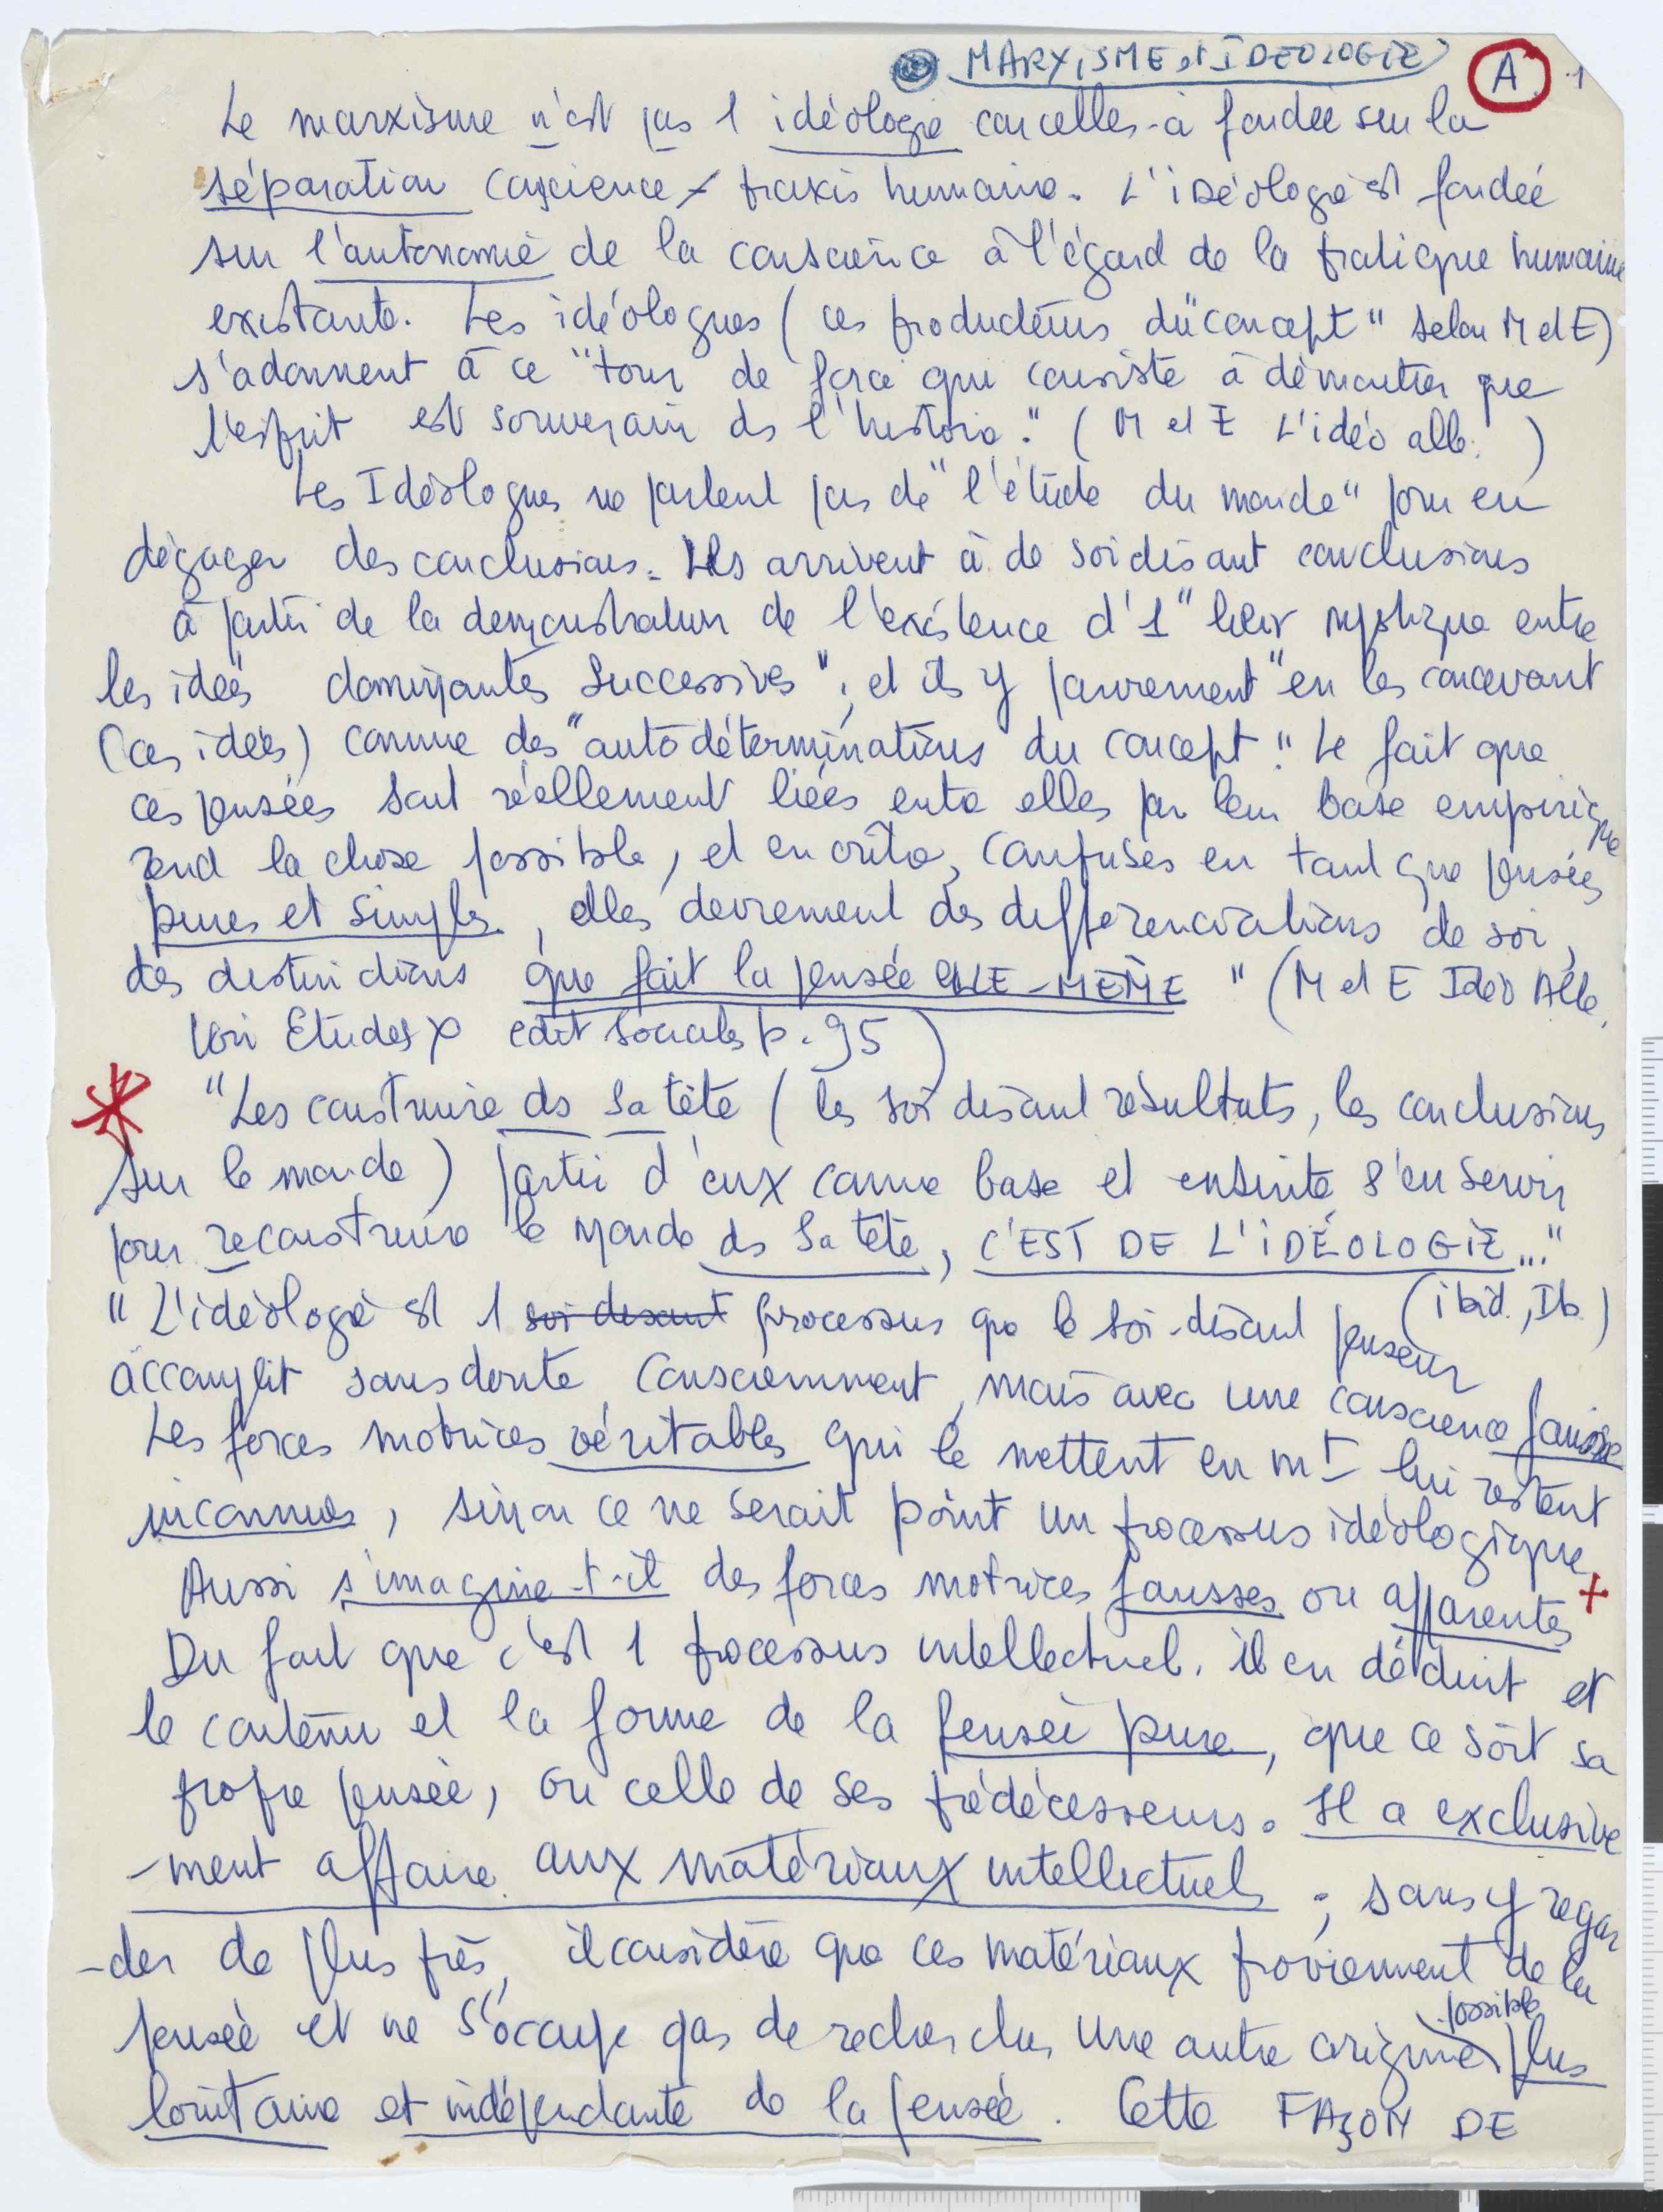 MARXISME et IDEOLOGIE A 1
Le marxisme n'est pas 1 idéologie car celle-là fondée sur la
séparation conscience ≠ praxis humaine. L'idéologie est fondée
sur l'autonomie de la conscience à l'égard de la pratique humaine
existante. Les idéologues (ces producteurs du "concept" selon M et E)
s'adonnent à ce "tour de force qui consiste à démontrer que
l'esprit est souverain ds l'histoire." (M et E L'idéo alle. )
Les Idéologues ne partent pas de "l'étude du monde" pour en
dégager des conclusions. Ils arrivent à de soi disant conclusions
à partir de la demonstration de l'existence d'1 "lien mystique entre
les idées dominantes successives", et ils y parviennent "en les concevant
(ces idées) comme des "autodéterminations du concept". Le fait que
ces pensées sont réellement liées entre elles par leur base empirique
rend la chose possible, et en outre, comprises en tant que pensées
pures et simples, elles deviennent des differenciations de soi,
des distinctions que fait la pensée ELLE-MÊME" (M et E Idéo Alle.
Voir Etudes φ edit sociales p. 95)
"Les construire ds sa tête (les soi disant résultats, les conclusions
sur le monde) partir d'eux comme base et ensuite s'en servir
pour reconstruire le monde ds sa tête, C'EST DE L'IDÉOLOGIE..."
(ibid., Ib.)
"L'idéologie est 1 soi disant processus que le soi-disant penseur
accomplit sans doute consciemment, mais avec une conscience fausse
Les forces motrices véritables qui le mettent en mt lui restent
inconnues, sinon ce ne serait point un processus idéologique
Aussi s'imagine-t-il des forces motrices fausses ou apparentes +
Du fait que c'est 1 processus intellectuel. il en déduit et
le contenu et la forme de la pensée pure, que ce soit sa
propre pensée, ou celle de ses prédécesseurs. Il a exclusive
-ment affaire aux matériaux intellectuels ; sans y regar
-der de plus près, il considère que ces matériaux proviennent de la
pensée et ne s'occupe pas de rechercher une autre origine possible plus
lointaine et indépendante de la pensée. Cette FAÇON DE